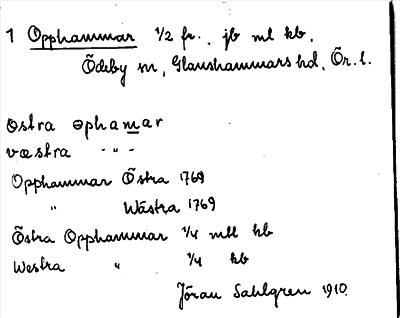 1 Opphammar 1/2 fr. jb ml kb.
Ödeby sn, Glanshammars hd, Ör. l.
østra øphamar
væstra - " -
Opphammar Östra 1769
" Wästra 1769
Östra Opphammar 1/4 mtl kb
Westra " 1/4 kb
Jöran Sahlgren 1910.